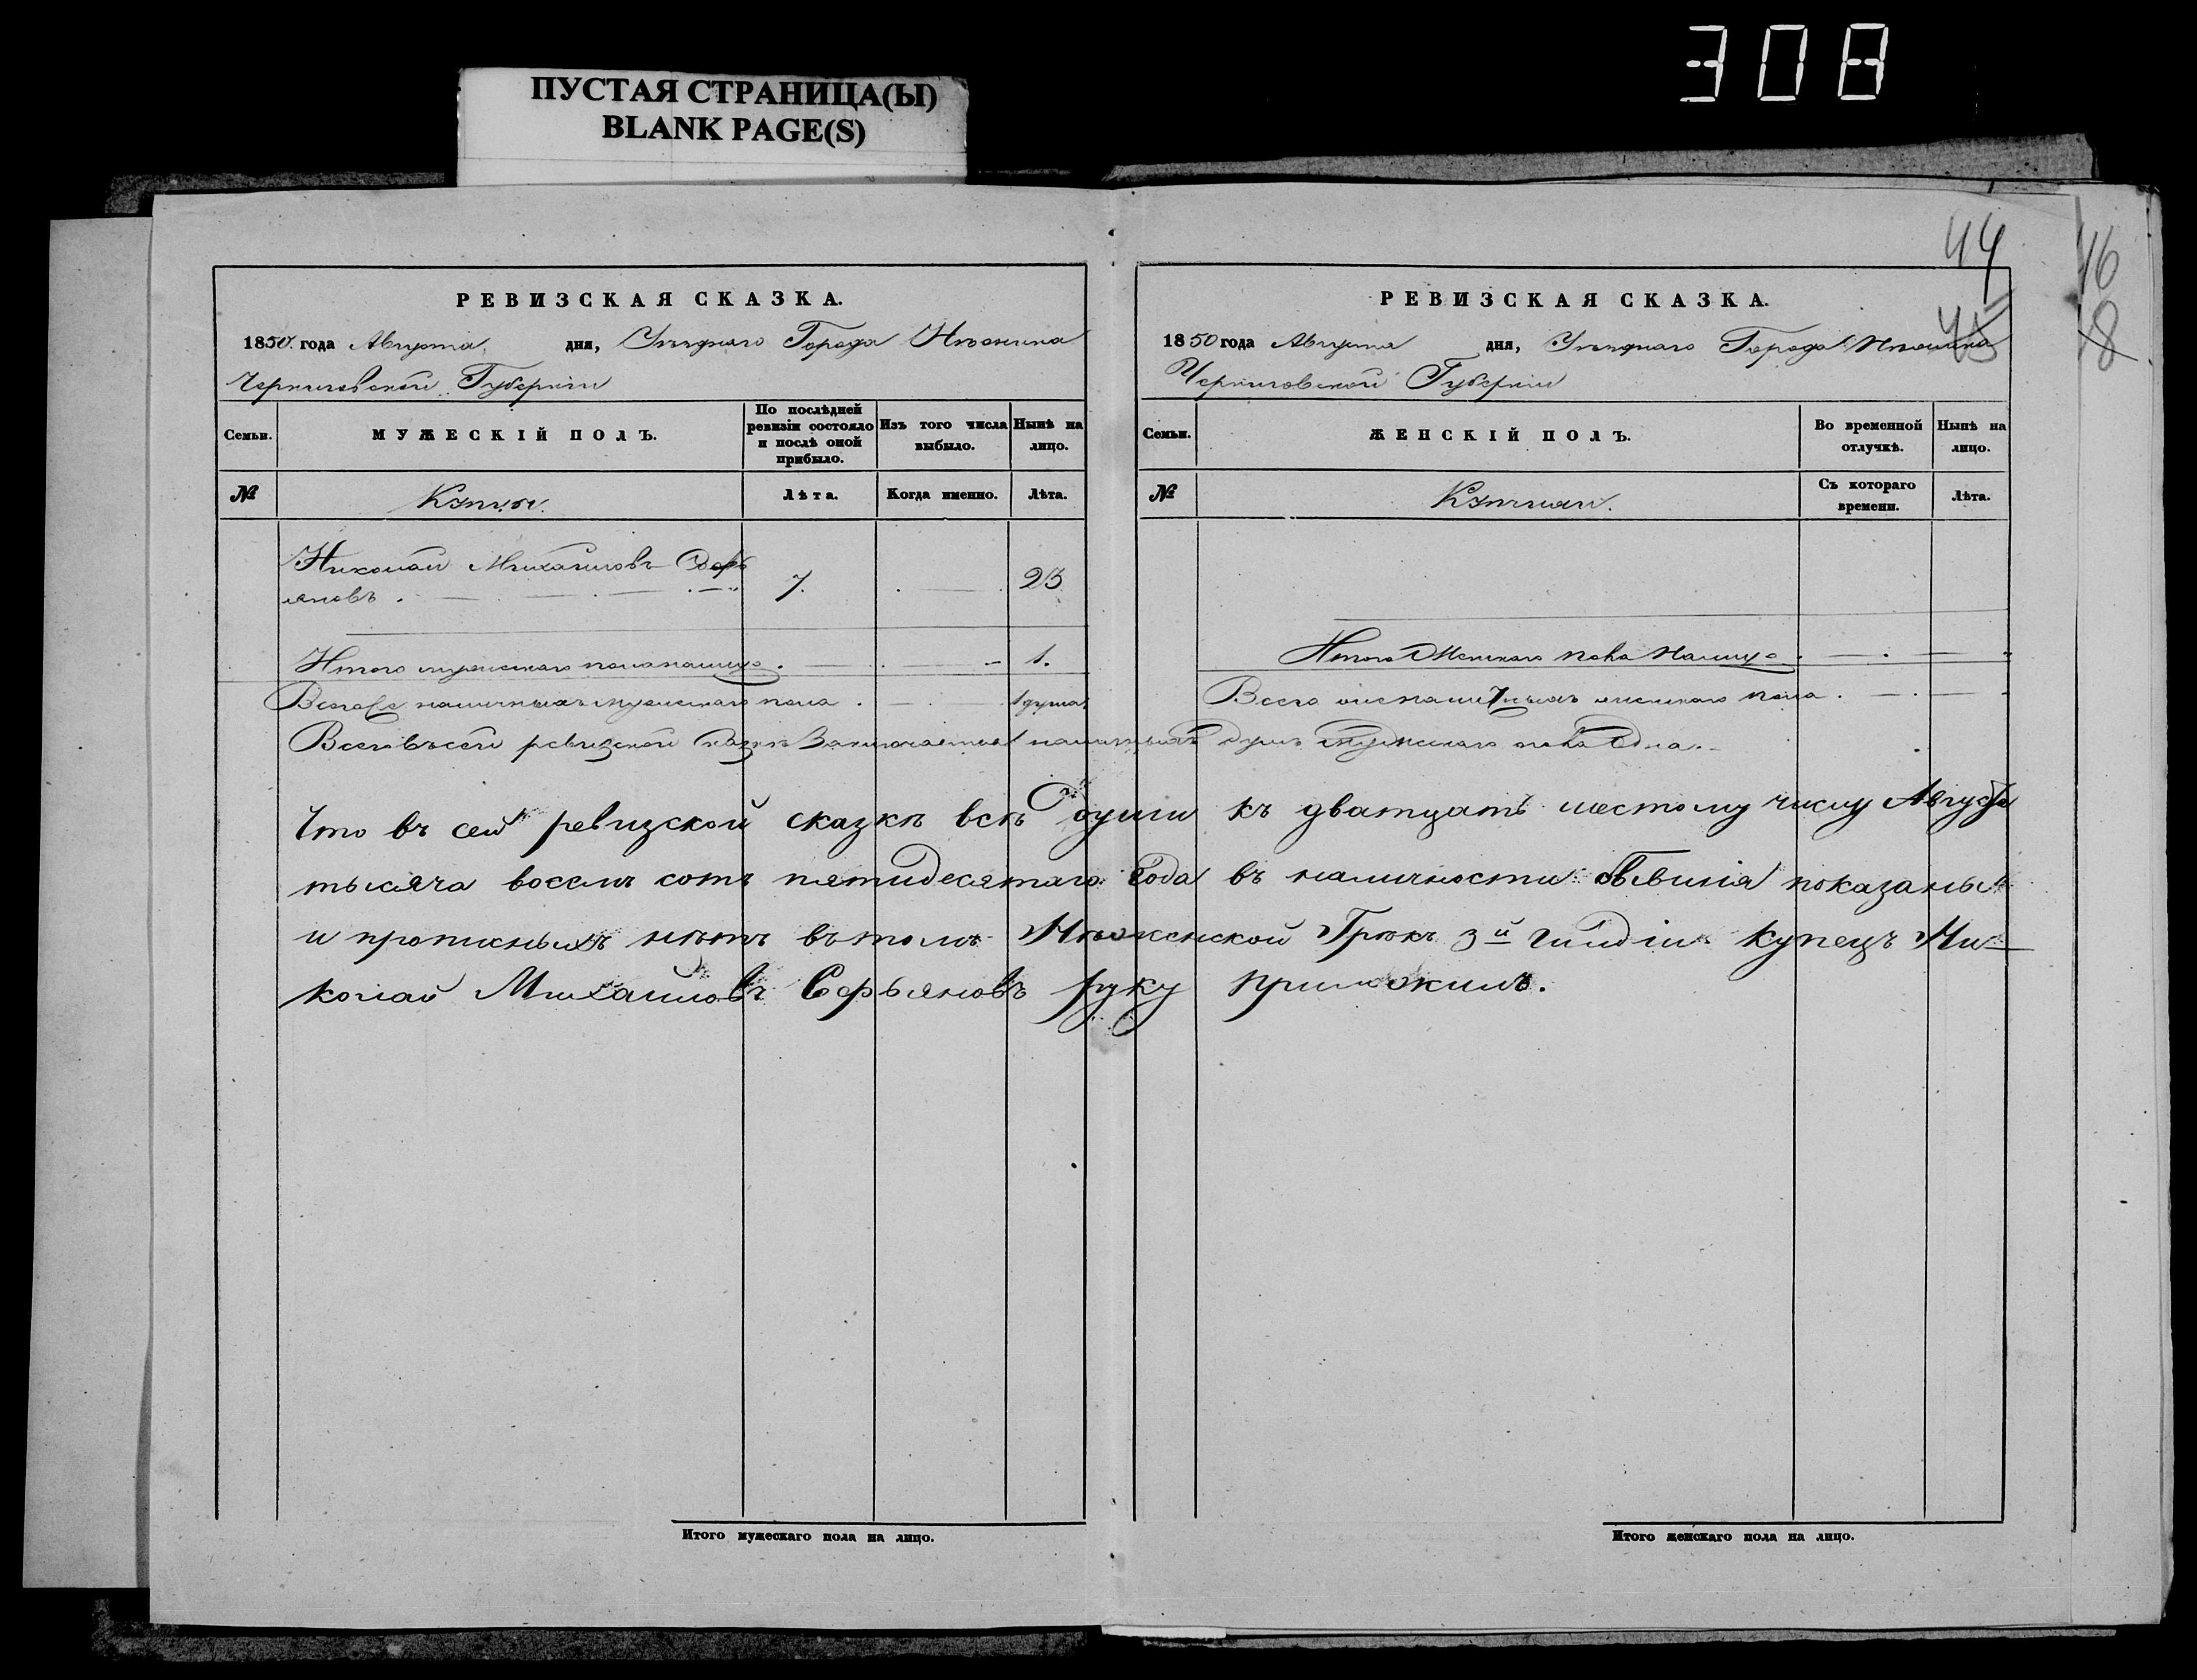 308
ПУСТАЯ СТРАНИЦА(Ы)
BLANK PAGE(S)
РЕВИЗСКАЯ СКАЗКА.
1850. года Августа дня, Уѣзднаго Города Нѣжина
Черниговской Губерніи
Семьи.
МУЖЕСКІЙ ПОЛЪ.
По послѣдней ревизіи состояло и послѣ оной прибыло.
Изъ того числа выбыло.
Нынѣ на лицо.
№
Купцы.
Лѣта.
Когда именно.
Лѣта.
Николай Михайловъ Сефь
яновъ. 7. 23
Итого мужескаго пола на лицо. 1.
Всего наличныхъ мужескаго пола 1 душа.
44
46
45
48
РЕВИЗСКАЯ СКАЗКА.
1850 года Августа дня, Уѣзднаго Города Нѣжина
Черниговской Губерніи
Семьи.
ЖЕНСКІЙ ПОЛЪ.
Во временной отлучкѣ.
Нынѣ на лицо.
№
Съ котораго времени.
Лѣта.
Итого Женскаго пола на лицо
Всего наличныхъ женскаго пола.
Всего въ сей ревизской сказкѣ заключается наличныхъ душъ мужескаго пола одна.
Что въ сей ревизской сказкѣ всѣ души къ дватцать шестому числу Августа
тысяча восемъ сотъ пятидесятаго Года въ наличности бывшія показаны
и прописныхъ нѣтъ въ томъ Нѣженской Грѣкъ 3й гильдіи купецъ Ни-
колай Михайловъ Сефьяновъ руку приложилъ.
Итого мужескаго пола на лицо.
Итого женскаго пола на лицо.